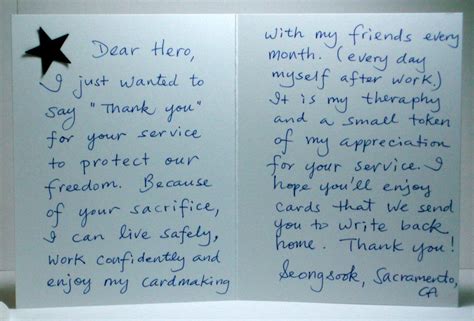 Dear Hero,
I just wanted to
say "Thank you"
for your service
to protect our
freedom. Because
of your sacrifice,
I can live safely,
work confidently and
enjoy my cardmaking
with my friends every
month. (every day
myself after work.)
It is my theraphy
and a small token
of my appreciation
for your service. I
hope you'll enjoy
cards that we send
you to write back
home. Thank you!
Seongsook, Sacramento,
CA